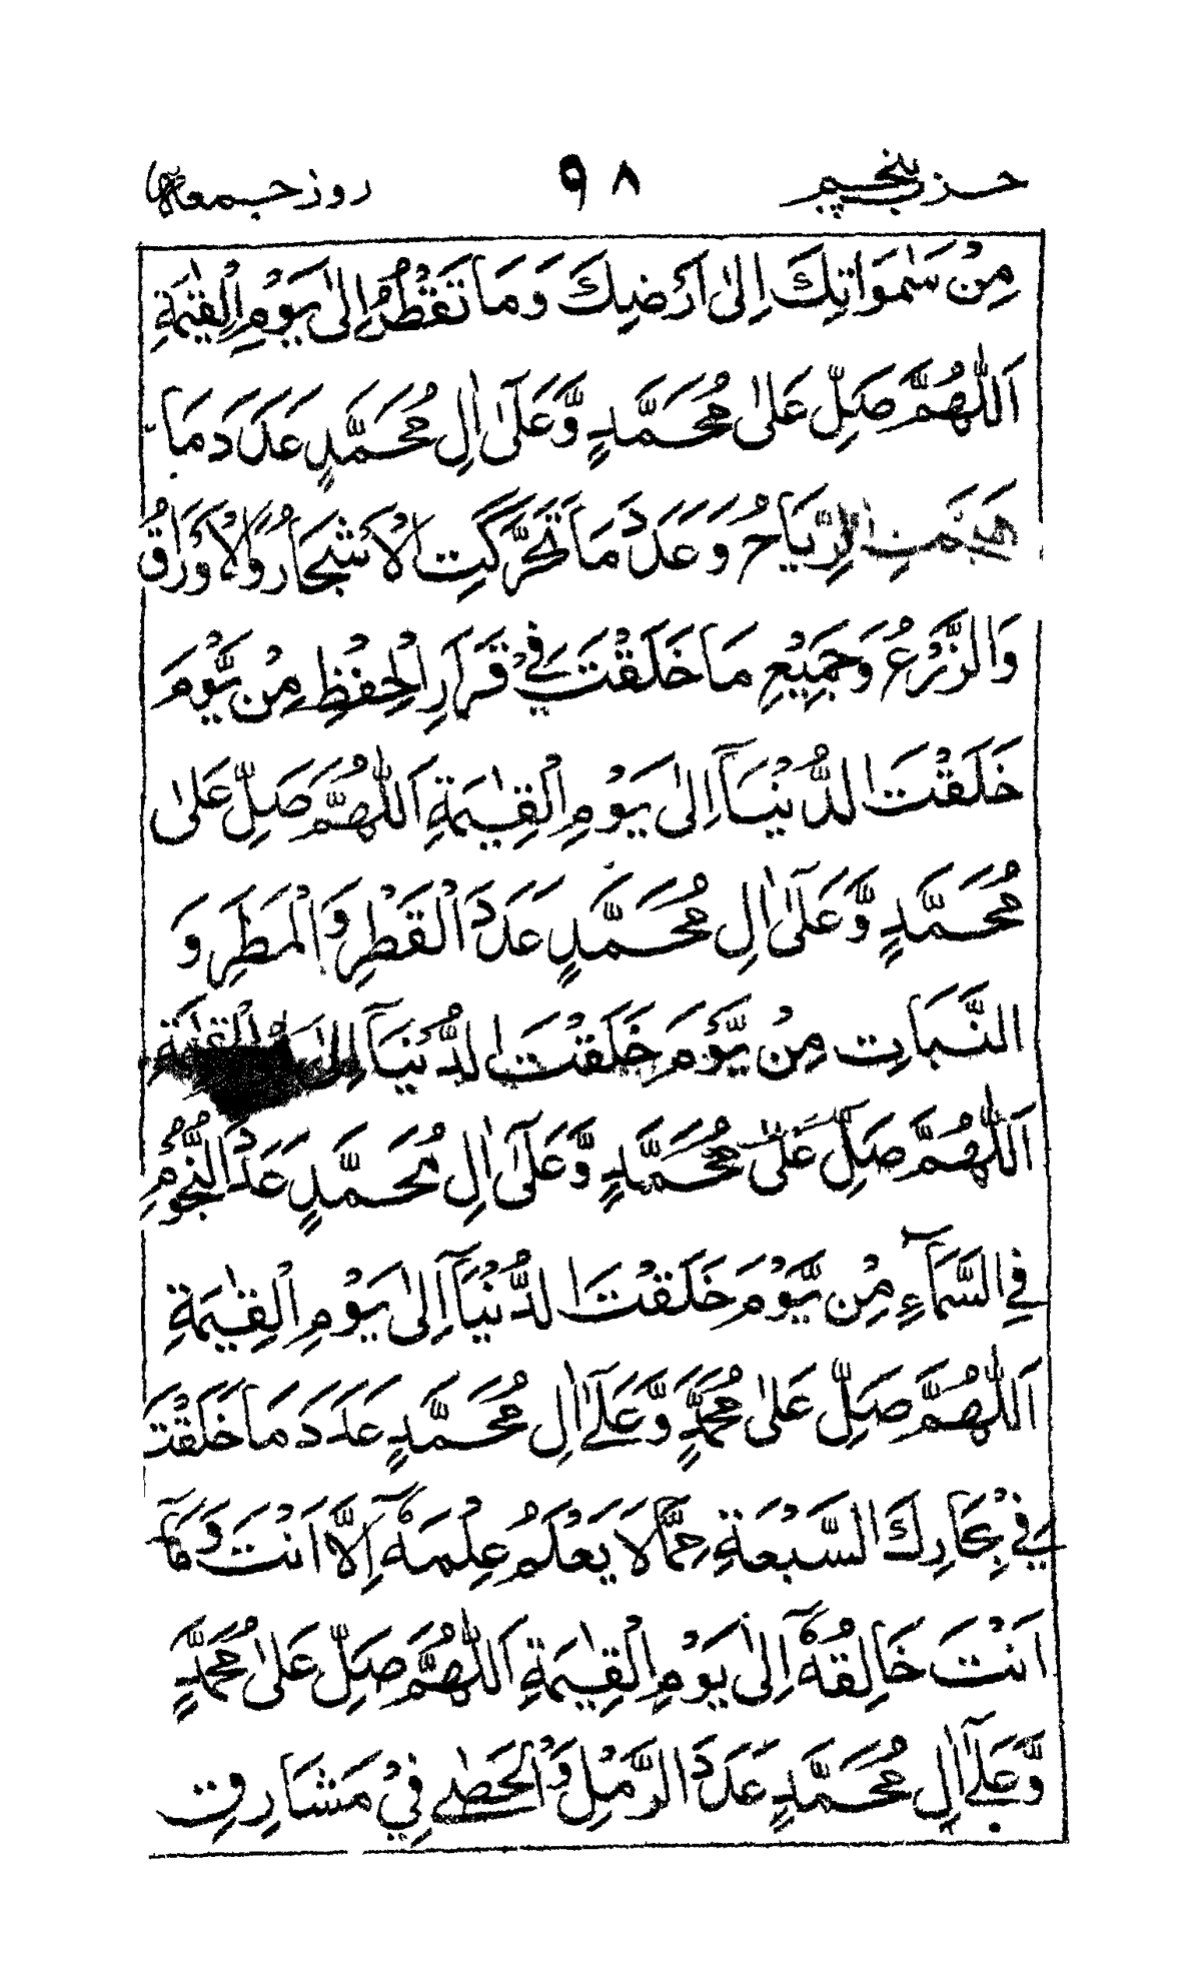 حزب پنجم ٩٨ روز جمعه
مِنْ سَمٰوَاتِكَ اِلىٰ اَرْضِكَ وَمَا تَقْطُرُ اِلىٰ يَوْمِ الْقِيٰمَةِ
اَللّٰهُمَّ صَلِّ عَلىٰ مُحَمَّدٍ وَّعَلىٰٓ اٰلِ مُحَمَّدٍ عَدَدَ مَا
هَبَّتِ الرِّيَاحُ وَعَدَدَ مَا تَحَرَّكَتِ الْاَشْجَارُ وَالْاَوْرَاقُ
وَالزَّرْعُ وَجَمِيْعِ مَا خَلَقْتَ فِيْ قَرَارِ الْحِفْظِ مِنْ يَّوْمَ
خَلَقْتَ الدُّنْيَآ اِلىٰ يَوْمِ الْقِيٰمَةِ اَللّٰهُمَّ صَلِّ عَلىٰ
مُحَمَّدٍ وَّعَلىٰٓ اٰلِ مُحَمَّدٍ عَدَدَ الْقَطْرِ وَالْمَطَرِ وَ
النَّبَاتِ مِنْ يَّوْمَ خَلَقْتَ الدُّنْيَآ اِلىٰ يَوْمِ الْقِيٰمَةِ
اَللّٰهُمَّ صَلِّ عَلىٰ مُحَمَّدٍ وَّعَلىٰٓ اٰلِ مُحَمَّدٍ عَدَدَ النُّجُوْمِ
فِي السَّمَآءِ مِنْ يَّوْمَ خَلَقْتَ الدُّنْيَآ اِلىٰ يَوْمِ الْقِيٰمَةِ
اَللّٰهُمَّ صَلِّ عَلىٰ مُحَمَّدٍ وَّعَلىٰٓ اٰلِ مُحَمَّدٍ عَدَدَ مَا خَلَقْتَ
فِيْ بِحَارِكَ السَّبْعَةِ مِمَّا لَا يَعْلَمُ عِلْمَهٗٓ اِلَّآ اَنْتَ وَمَآ
اَنْتَ خَالِقُهٗٓ اِلىٰ يَوْمِ الْقِيٰمَةِ اَللّٰهُمَّ صَلِّ عَلىٰ مُحَمَّدٍ
وَّعَلىٰٓ اٰلِ مُحَمَّدٍ عَدَدَ الرَّمْلِ وَالْحَصٰى فِيْ مَشَارِقِ